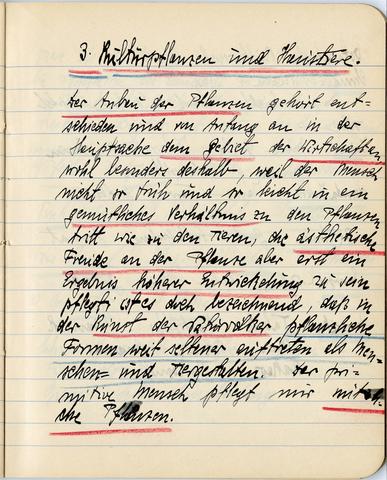 3. Kulturpflanzen und Haustiere.
Der Anbau der Pflanzen gehört ent-
schieden und von Anfang an in der
Hauptsache dem Gebiet der Wirtschaften
wohl besonders deshalb, weil der Mensch
nicht so früh und so leicht in ein
gemütliches Verhältnis zu den Pflanzen
tritt wie zu den Tieren, die ästhetische
Freude an der Pflanze aber erst ein
Ergebnis höherer Entwickelung zu sein
pflegt; ist es doch bezeichnend, daß in
der Kunst der Naturvölker pflanzliche
Formen weit seltener auftreten als Men-
schen= und Tiergestalten. Der pri-
mitive Mensch pflegt nur
Pflanzen.